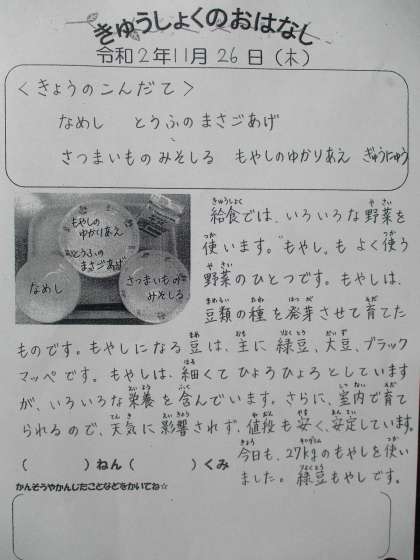 きゅうしょくのおはなし
令和2年11月26日(木)
<きょうのこんだて>
なめし とうふのまさごあげ
さつまいものみそしる もやしのゆかりあえ ぎゅうにゅう
もやしの
ゆかりあえ
とうふの
まさごあげ
なめし
さつまいもの
みそしる
給食では、いろいろな野菜を
使います。"もやし"もよく使う
野菜のひとつです。もやしは、
豆類の種を発芽させて育てた
ものです。もやしになる豆は、主に緑豆、大豆、ブラック
マッペです。もやしは、細くてひょろひょろとしています
が、いろいろな栄養を含んでいます。さらに、室内で育て
られるので、天気に影響されず、値段も安く、安定しています。
今日も、27kgのもやしを使い
ました。緑豆もやしです。
( )ねん( )くみ
かんそうやかんじたことなどをかいてね☆